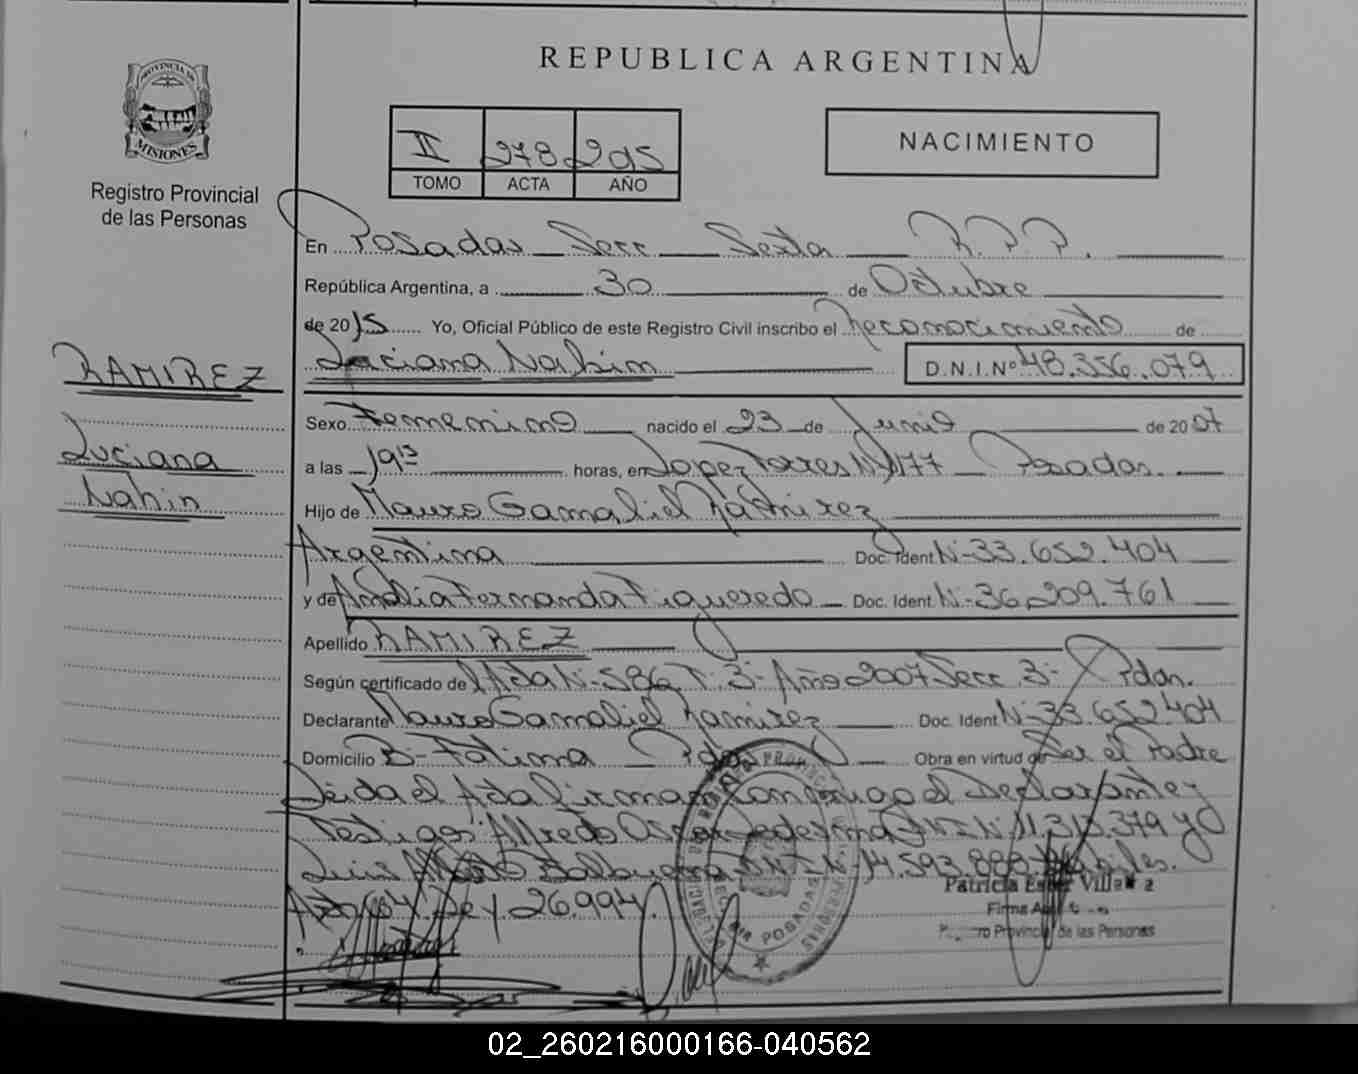 REPUBLICA ARGENTINA
PROVINCIA DE
MISIONES
Registro Provincial
de las Personas
II 278 2015
TOMO ACTA AÑO
NACIMIENTO
En Posadas Secc Sexta R.P.P.
República Argentina, a 30 de Octubre
de 2015 Yo, Oficial Público de este Registro Civil inscribo el Reconocimiento de
Luciana Nahim D.N.I.Nº 48.356.079
RAMIREZ
Luciana
Nahin
Sexo Femenino nacido el 23 de Junio de 2007
a las 19 15 horas, en Lopez Torres Nº 1177 Posadas.
Hijo de Mauro Gamaliel Ramirez
Argentina Doc. Ident Nº 33.652.404
y de Amalia Fernanda Figueredo Doc. Ident. Nº 36.209.761
Apellido RAMIREZ
Según certificado de Acta Nº 586 T. 3º Año 2007 Secc 3º Pdas.
Declarante Mauro Gamaliel Ramirez Doc. Ident Nº 33.652.404
Domicilio Bº Fatima Pdas Obra en virtud de Ser el Padre
Leida el Acta firman conmigo el Declarante y
Testigos Alfredo Oscar Ledesma DNI Nº 11.313.379 y
Luis Balbuena DNI Nº 14.593.888 Habiles.
Ley 26.994.
POSADAS
Patricia Villa
Firma
Provincial de las Personas
02_260216000166-040562